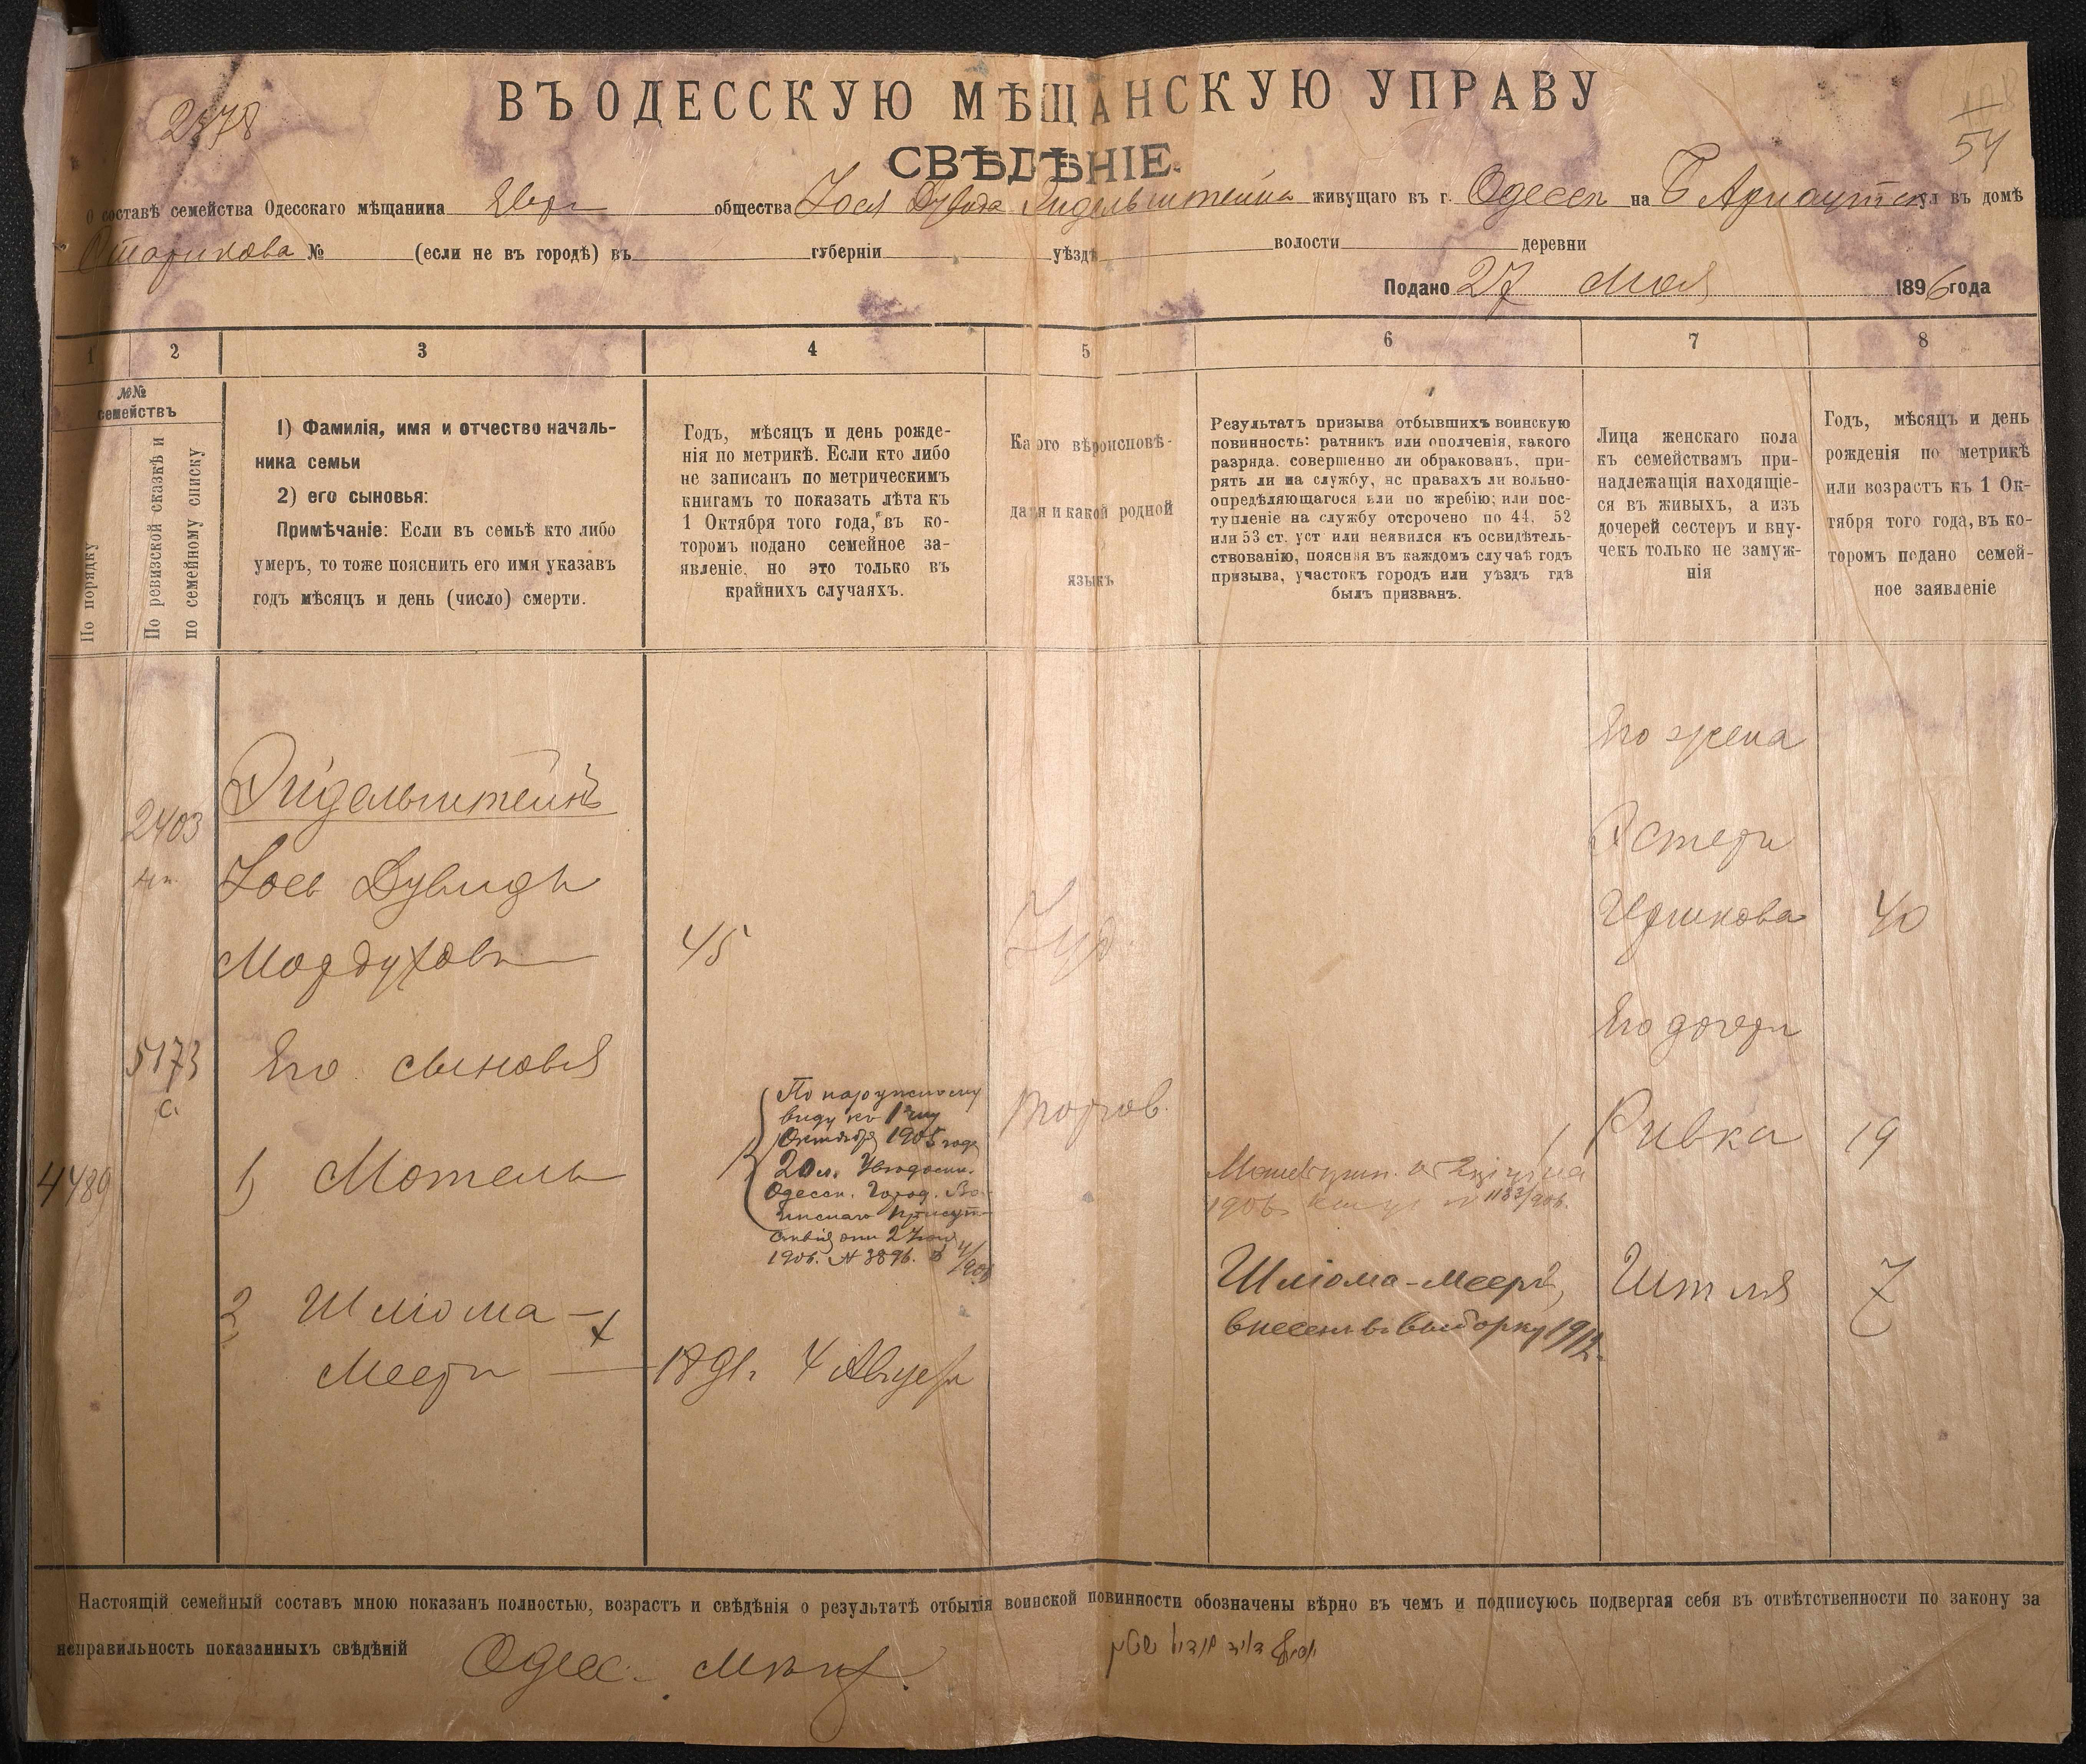 ВЪ ОДЕССКУЮ МѢЩАНСКУЮ УПРАВУ
2378
54
СВѢДѢНІЕ.
О составѣ семейства Одесскаго мѣщанина Евр общества Іося Дувида Эйдельштейна живущаго въ г. Одессѣ на Б Арнаутск ул въ домѣ
Старикова № (если не въ городѣ) въ губерніи уѣздѣ волости деревни
Подано 27 Мая 1896 года
1 2 3 4 5 6 7 8
№№
семействъ
По порядку
По ревизской сказкѣ и
по семейному списку
1) Фамилія, имя и отчество началь-
ника семьи
2) его сыновья:
Примѣчаніе: Если въ семьѣ кто либо
умеръ, то тоже пояснить его имя указавъ
годъ мѣсяцъ и день (число) смерти.
Годъ, мѣсяцъ и день рожде-
нія по метрикѣ. Если кто либо
не записанъ по метрическимъ
книгамъ то показать лѣта къ
1 Октября того года, въ ко-
торомъ подано семейное за-
явленіе, но это только въ
крайнихъ случаяхъ.
Какого вѣроисповѣ-
данія и какой родной
языкъ
Результатъ призыва отбывшихъ воинскую
повинность: ратникъ или ополченія, какого
разряда. совершенно ли обракованъ, при-
рятъ ли на службу, нс правахъ ли вольно-
опредѣляющагося или по жребію; или пос-
тупленіе на службу отсрочено по 44, 52
или 53 ст. уст или неявился къ освидѣтель-
ствованію, поясняя въ каждомъ случаѣ годъ
призыва, участокъ городъ или уѣздъ гдѣ
былъ призванъ.
Лица женскаго пола
къ семействамъ при-
надлежащія находящіе-
ся въ живыхъ, а изъ
дочерей сестеръ и вну-
чекъ только не замуж-
нія
Годъ, мѣсяцъ и день
рожденія по метрикѣ
или возрастъ къ 1 Ок-
тября того года, въ ко-
торомъ подано семей-
ное заявленіе
Его жена
Эйдельштейнъ
2403
Эстеръ
Іось Дувидъ
Иршкова 40
Мордуховъ 45 Іуд.
Его дочери
5173
с.
Его сыновья
По наружному
виду къ 1му
Октября 1905 года
20 л.
Одесск. Город. Во-
инскаго Присут-
ствія отъ
1906. № 3896.
Ривка 19
4489 1) Мотель
1906
№ 1183/906.
2 Шліома –
Мееръ 1891г. 4 Август
Шліома-Мееръ,
внесенъ въ выборку 1912.
Итля 7
Настоящій семейный составъ мною показанъ полностью, возрастъ и свѣдѣнія о результатѣ отбытія воинской повинности обозначены вѣрно въ чемъ и подписуюсь подвергая себя въ отвѣтственности по закону за
неправильность показанныхъ свѣдѣній Одес. Мѣщ.